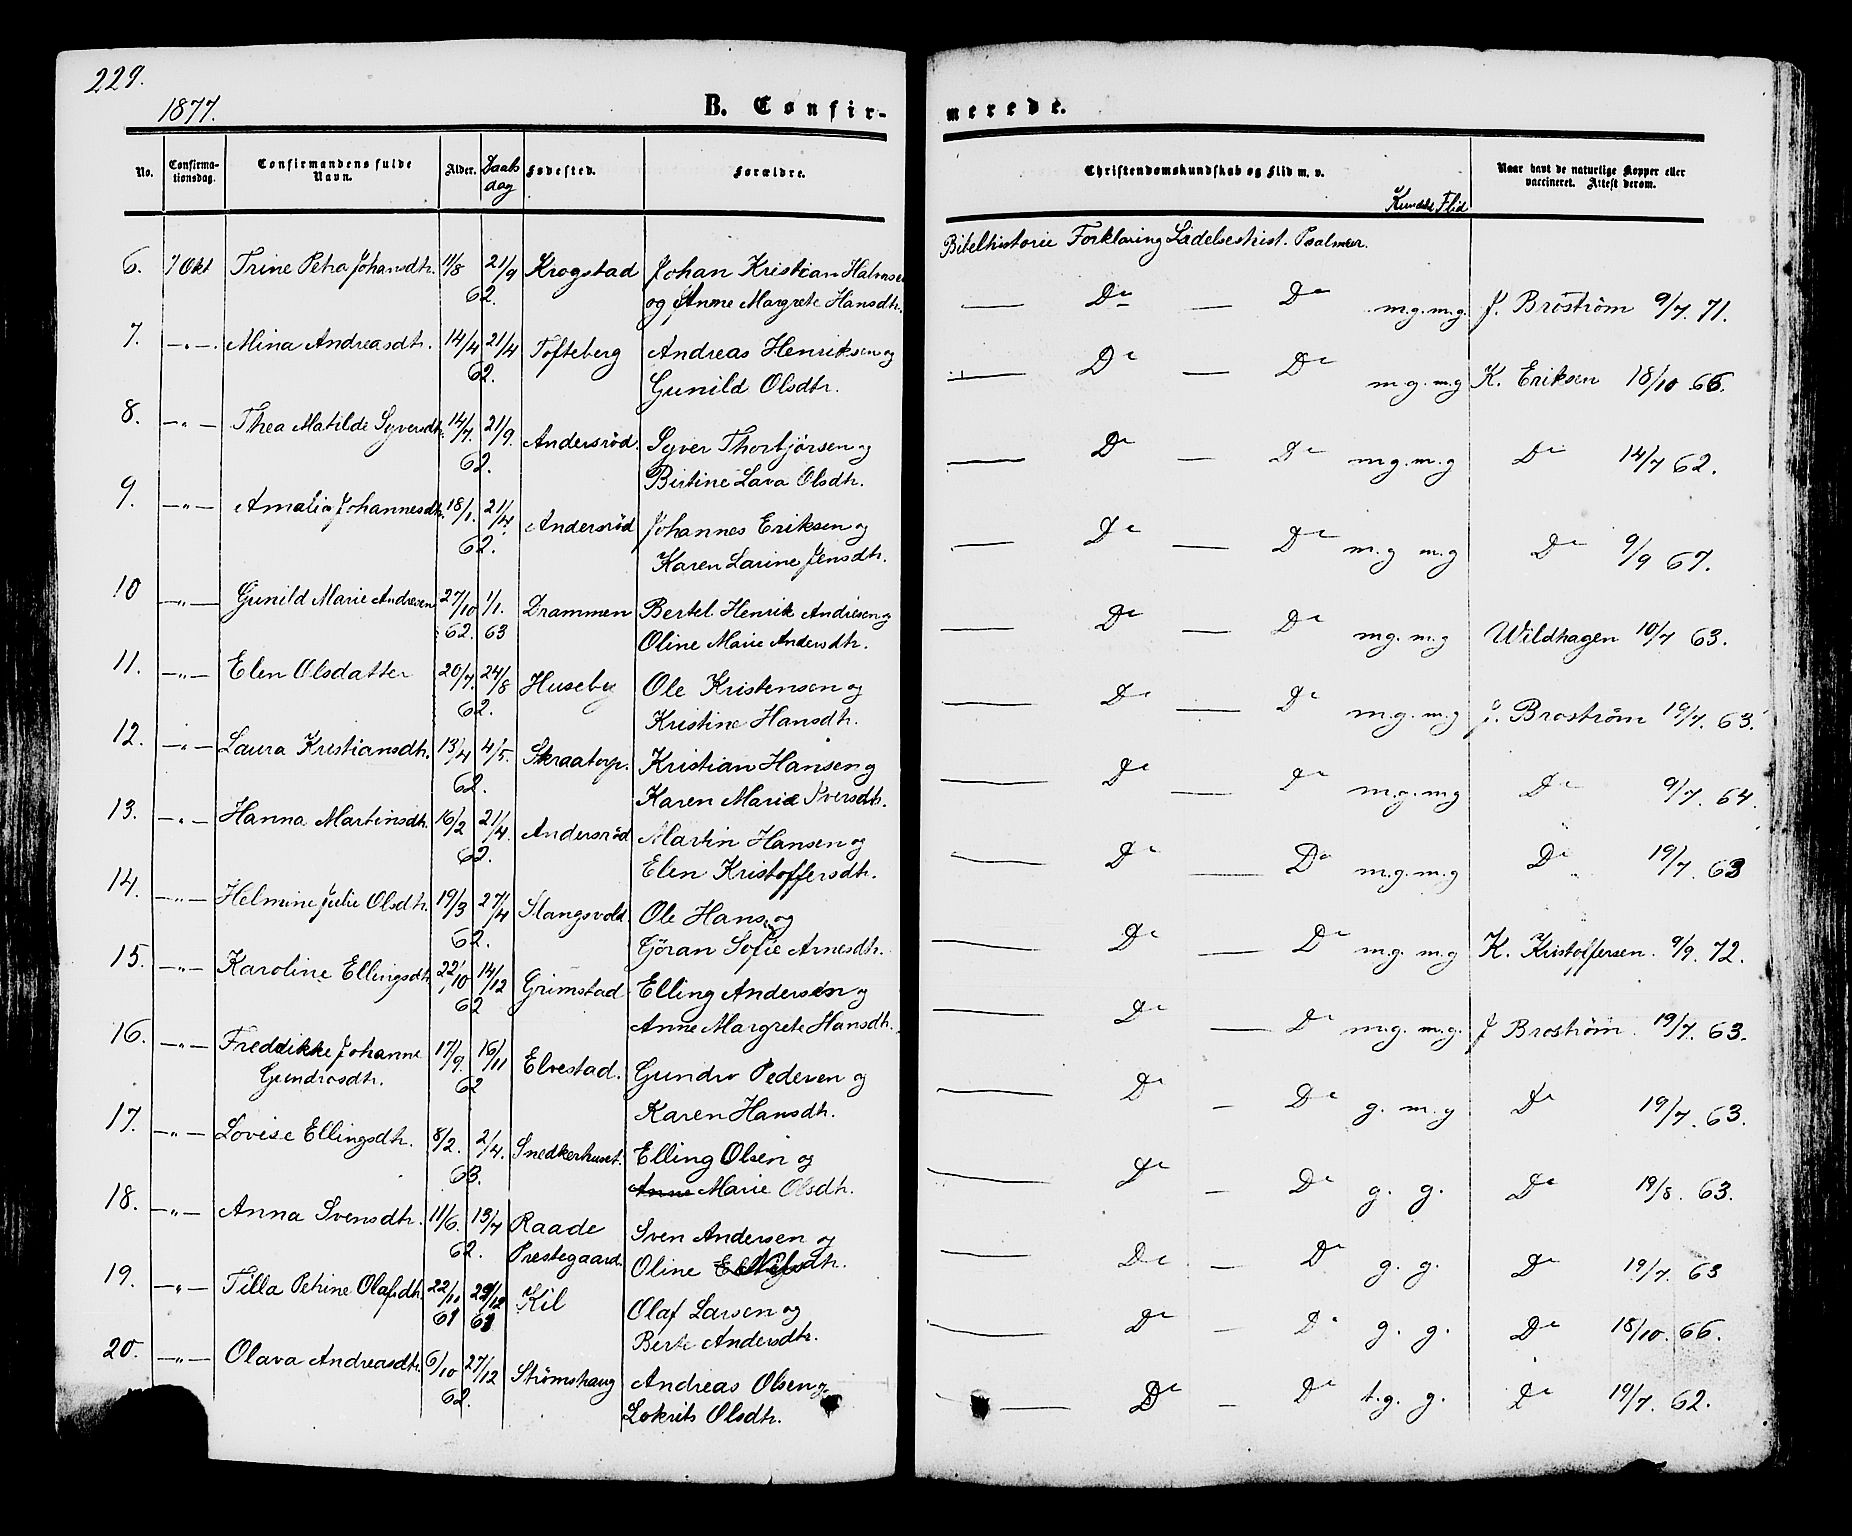 229.
1877.
B. Confir-
merede.
No.
Confirma-
tionsdag.
Confirmandens fulde
Navn.
Alder.
Daabs
dag
Fødested.
Forældre.
Christendomskundskab og Flid m. v.
Kundsk Flid
Naar havt de naturlige Kopper eller
vaccineret. Attest derom.
Bibelhistorie Forklaring Lidelseshist. Psalmer.
6. 7 Okt Trine Petra Johansdtr. 11/8 21/9 Krogstad Johan Kristian Halvorsen
62. og Anne Margrete Hansdtr.
— Do — Do m.g. m.g. J. Broström 9/7. 71.
7. —„— Mina Andreasdtr. 14/4 21/4 Tofteberg Andreas Henriksen og
62. Gunild Olsdtr.
— Do — Do m.g. m.g K. Eriksen 18/10 66.
8. —„— Thea Matilde Syversdtr. 14/7. 21/9. Andersröd. Syver Thorbjörsen og
62. Bertine Lava Olsdtr.
— Do — Do m.g. m.g Do 14/7 62.
9. —„— Amalia Johannesdtr. 18/1. 21/4. Andersröd Johannes Eriksen og
62. Karen Larine Jensdtr.
— Do — Do m.g m.g Do 9/9 67.
10 —„— Gunild Marie Andresen 27/10 1/1. Drammen Bertel Henrik Andresen og
62. 63 Oline Marie Andersdtr.
— Do — Do m.g. m.g Wildhagen 10/7 63.
11. —„— Elen Olsdatter 20/7. 24/8 Huseby Ole Kristensen og
62. Kristine Hansdtr.
— Do — Do m.g. m.g J. Broström 19/7. 63.
12. —„— Laura Kristiansdtr. 13/4 4/5. Skraatorp. Kristian Hansen og
62. Karen Marie Iversdtr.
— Do — Do m.g. m.g Do 9/7. 64.
13. —„— Hanna Martinsdtr. 16/2 21/4. Andersröd Martin Hansen og
62. Elen Kristoffersdtr.
— Do — Do m.g. m.g Do 19/7. 63
14. —„— Helmine Julie Olsdtr. 19/3 27/4 Slangsvold Ole Hans. og
62. Göran Sofie Arnesdtr.
— Do — Do m.g. m.g K. Kristoffersen. 9/9. 72.
15. —„— Karoline Ellingsdtr 22/10 14/12 Grimstad Elling Andersen og
62 Anne Margrete Hansdtr.
— Do — Do m.g. m.g. J Broström. 19/7. 63.
16. —„— Fredrikke Johanne 17/9. 16/11 Elvestad. Gundro Pedersen og
Gundrosdtr. 62 Karen Hansdtr.
— Do — Do g. m.g Do 19/7. 63.
17. —„— Lovise Ellingsdtr. 8/2. 2/4. Snedkerhuset. Elling Olsen og
63. Anne Marie Olsdtr.
— Do — Do g. g. Do 19/8. 63.
18. —„— Anna Svensdtr. 11/6. 13/7 Raade Sven Andersen og
62. Prestegaard. Oline
— Do — Do g. g. Do 19/7. 63
19. —„— Tilla Petrine Olafsdtr. 22/11 29/12 Kil Olaf Larsen og
61 61 Berte Andersdtr.
— Do — Do g. g. Do 18/10. 66.
20. —„— Olava Andreasdtr. 6/10 27/12 Strömshaug Andreas Olsen og
62. Lokrits Olsdtr.
— Do — Do t.g. g. Do 19/7. 62.